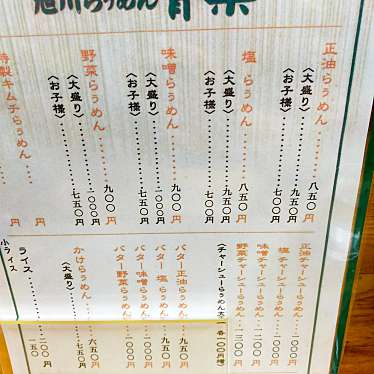 旭川らぅめん 青葉
正油らぅめん……八五〇円
〈大盛り〉……九五〇円
〈お子様〉……七〇〇円
塩らぅめん……八五〇円
〈大盛り〉……九五〇円
〈お子様〉……七〇〇円
味噌らぅめん……九〇〇円
〈大盛り〉……一〇〇〇円
〈お子様〉……七五〇円
野菜らぅめん……九〇〇円
〈大盛り〉……一〇〇〇円
〈お子様〉……七五〇円
特製キムチらぅめん……円
正油チャーシューらぅめん…一〇〇〇円
塩チャーシューらぅめん…一〇〇〇円
味噌チャーシューらぅめん…一一〇〇円
野菜チャーシューらぅめん…一三〇〇円
(チャーシューらぅめん大…各一〇〇円増)
バター正油らぅめん…九五〇円
バター塩らぅめん…九五〇円
バター味噌らぅめん…一〇〇〇円
バター野菜らぅめん…一〇〇〇円
かけらぅめん……六五〇円
〈大盛り〉……七五〇円
ライス……二〇〇円
小ライス……一五〇